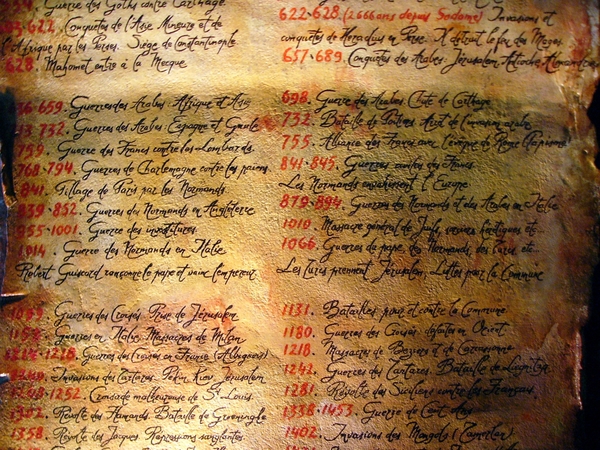 Guerre des Goths contre Carthage.
622. Conquêtes de l'Asie Mineure et de
l'Afrique par les Perses. Siège de Constantinople
628. Mahomet entre à la Mecque
659. Guerres des Arabes. Afrique et Asie
732. Guerres des Arabes. Espagne et Gaule
759. Guerre des Francs contre les Lombards
768-794. Guerres de Charlemagne contre les païens
841. Pillage de Paris par les Normands
839-852. Guerres des Normands en Angleterre
955-1001. Guerre des investitures
1014. Guerre des Normands en Italie
Robert Guiscard rançonne le pape et vainc l'empereur
1099. Guerres des Croisés. Prise de Jérusalem
Guerres en Italie. Massacres de Milan
1226. Guerres des croisés en France (Albigeois)
Invasions des Tartares. Pékin, Kiev, Jérusalem
1252. Croisade malheureuse de St-Louis
1302. Révolte des Flamands. Bataille de Groeninghe
1358. Révolte des Jacques. Répressions sanglantes
622-628. (2666 ans depuis Sodome) Invasions et
conquêtes de Héraclius en Perse. Il détruit le feu des Mages.
657-689. Conquêtes des Arabes. Jérusalem, Antioche, Alexandrie
698. Guerre des Arabes. Chute de Carthage
732. Bataille de Poitiers. Arrêt de l'invasion arabe
755. Alliance des Francs avec l'évêque de Rome (Papisme)
841-845. Guerres des Francs
Les Normands envahissent l'Europe
879-894. Guerres des Normands et des Arabes en Italie
1010. Massacre général de Juifs,
1066. Guerres du pape, des Normands, des Turcs etc..
Les Turcs prennent Jérusalem. Luttes pour la Commune
1131. Batailles pour et contre la Commune
1180. Guerres des Croisés. défaites en Orient
1218. Massacres de Béziers et de Carcassonne
1242. Guerres des Tartares. Bataille de
1281. Révolte des Siciliens contre les Français
1338-1453. Guerre de Cent Ans
1402. Invasions des Mongols (Tamerlan)